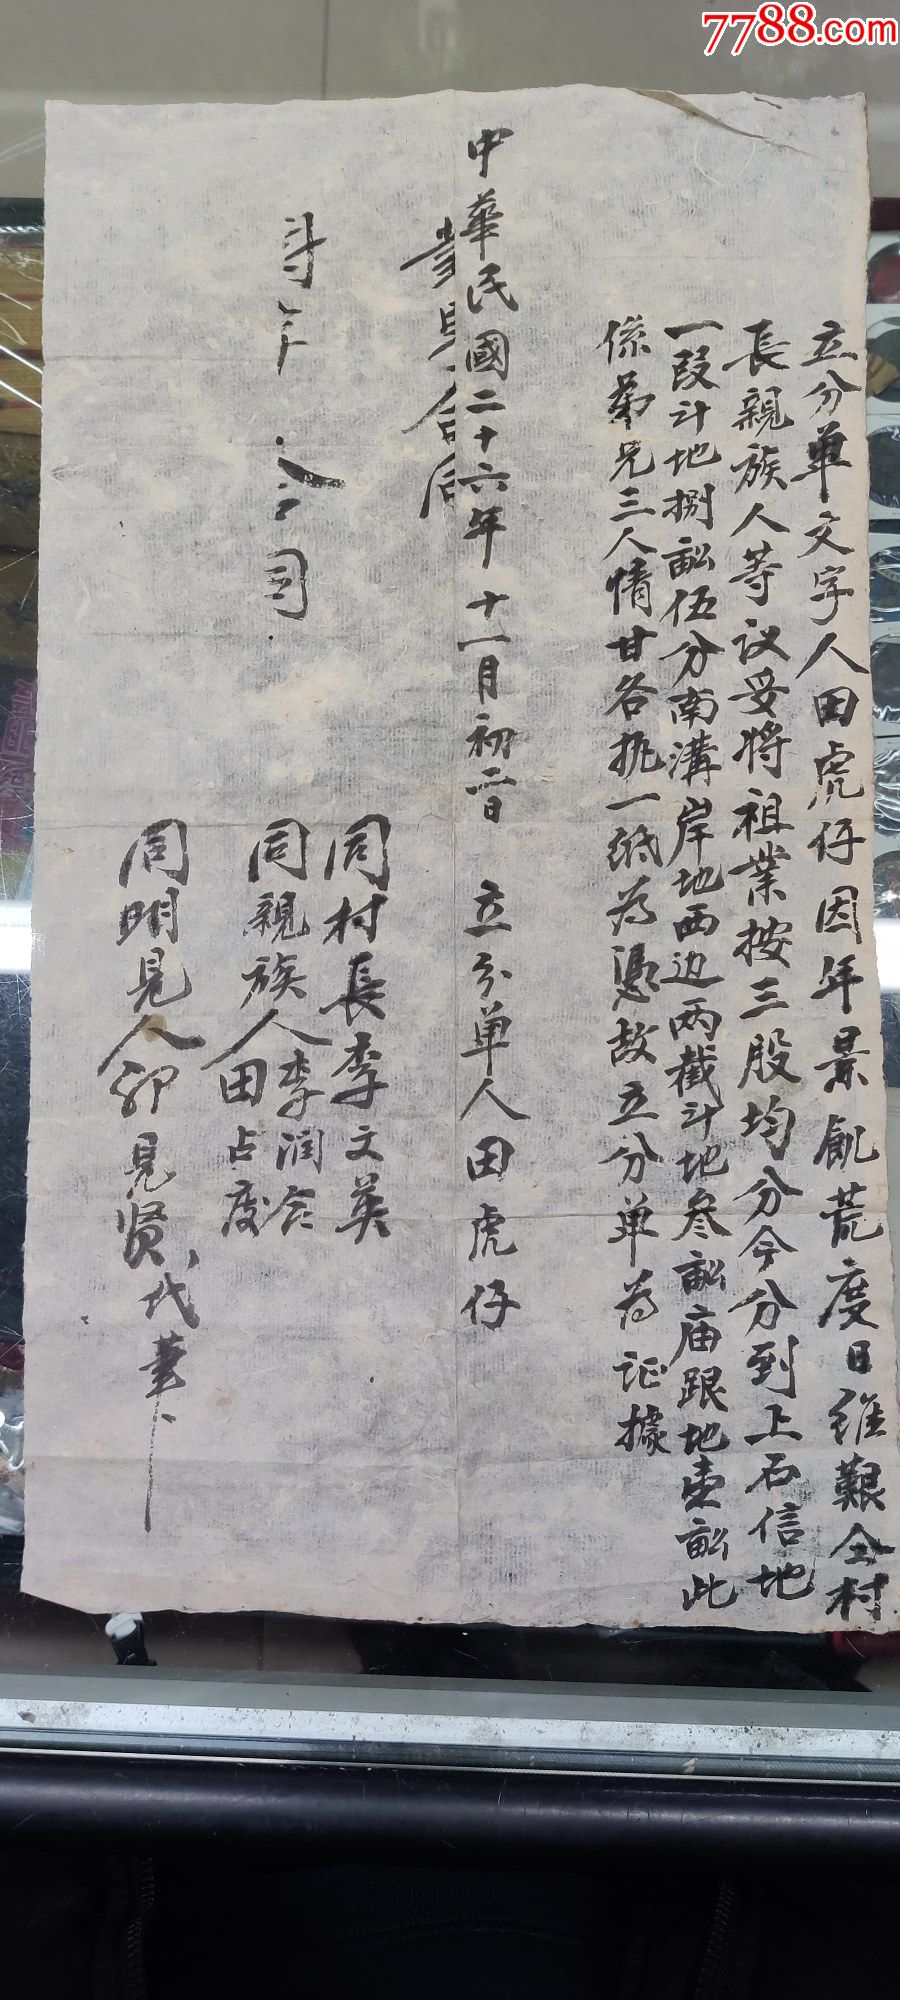 7788.com
立分單文字人田虎仔因年景飢荒度日维艱仝村
長親族人等议妥将祖業按三股均分今分到上石信地
一段计地捌畝伍分南溝岸地西边两截计地叁畝庙跟地壹畝此
係弟兄三人情甘各执一纸为憑故立分單为证據
中華民國二十六年十一月初二日 立分单人田虎仔
合同
同村長李文英
同親族人李润合
田占庭
合同
同明見人郭見贤代筆